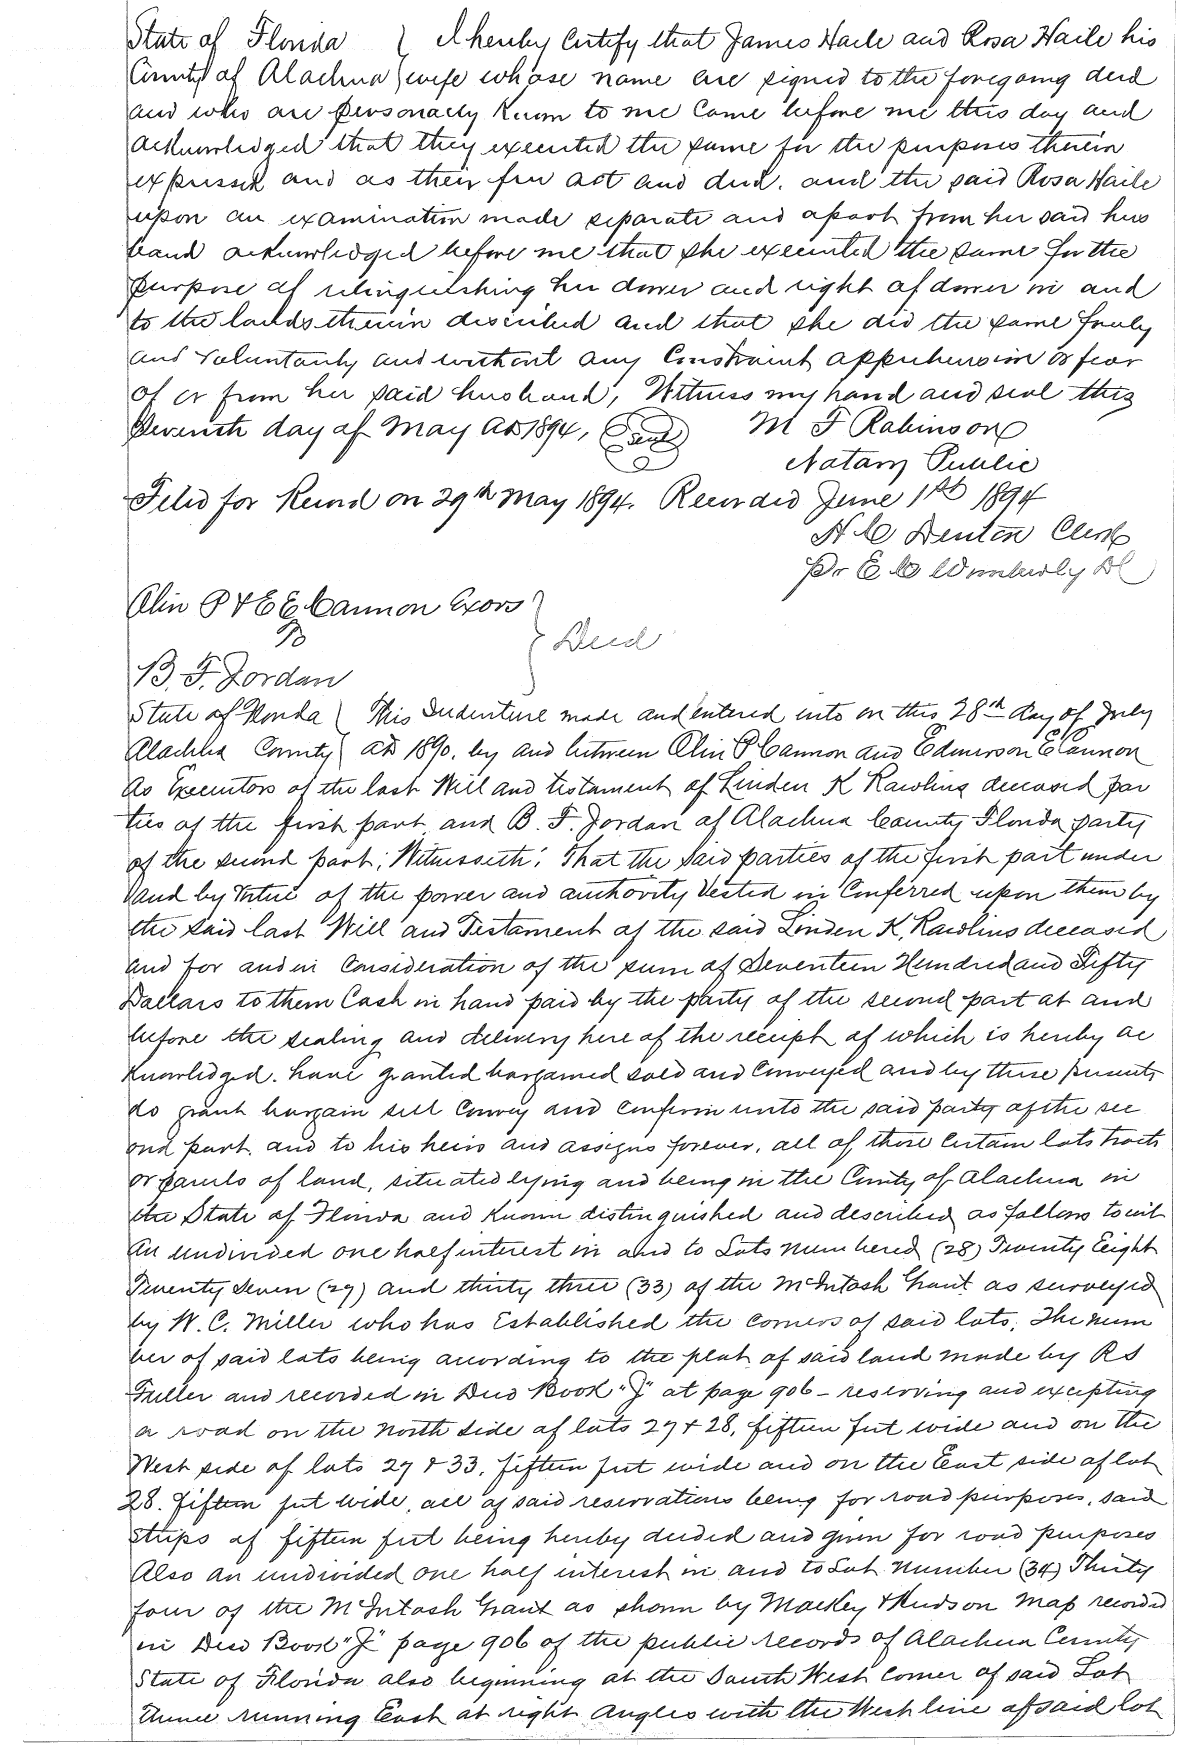 State of Florida } I hereby Certify that James Haile and Rosa Haile his
County of Alachua } wife whose name are signed to the foregoing deed
and who are personally known to me came before me this day and
acknowledged that they executed the same for the purposes therein
expressed and as their free act and deed. and the said Rosa Haile
upon an examination made separate and apart from her said hus
band acknowledged before me that she executed the same for the
purpose of relinquishing her dower and right of dower in and
to the lands therein described and that she did the same freely
and voluntarily and without any Constraint apprehension or fear
of or from her said husband, Witness my hand and seal this
Seventh day of May AD 1894, Seal M F Robinson
Notary Public
Filed for Record on 29th May 1894. Recorded June 1st 1894
H C Denton Clerk
Pr E C Wimberly DC
Olin P & E E Cannon Exors
To } Deed
B. F. Jordan
State of Florida } This Indenture made and entered into on this 28th day of July
Alachua County } AD 1890. by and between Olin P Cannon and Edmerson E Cannon
As Executors of the last Will and testament of Linden K Rawlins deceased par
ties of the first part and B. F. Jordan of Alachua County Florida party
of the second part; Witnesseth; That the said parties of the first part under
and by virtue of the power and authority vested in Conferred upon them by
the said last Will and Testament of the said Linden K. Rawlins deceased
and for and in Consideration of the sum of Seventeen Hundred and Fifty
Dollars to them Cash in hand paid by the party of the second part at and
before the sealing and delivery here of the receipt of which is hereby ac
knowledged. have granted bargained sold and Conveyed and by these presents
do grant bargain sell Convey and confirm unto the said party of the sec
ond part. and to his heirs and assigns forever, all of those certain lots tracts
or parcels of land, situated lying and being in the County of Alachua in
the State of Florida and known distinguished and described as follows to wit
An undivided one half interest in and to Lots numbered (28) Twenty Eight
Twenty Seven (27) and thirty three (33) of the McIntosh Grant as surveyed
by W. C. Miller who has Established the corners of said lots. The num
ber of said lots being according to the plat of said land made by R S
Fuller and recorded in Deed Book "J" at page 906 - reserving and excepting
a road on the north side of lots 27 & 28, fifteen feet wide and on the
West side of lots 27 & 33. fifteen feet wide and on the East side of lot
28. fifteen feet wide, all of said reservations being for road purposes, said
strips of fifteen feet being hereby deeded and given for road purposes
Also an undivided one half interest in and to Lot number (34) Thirty
four of the McIntosh Grant as shown by Mackey & Hudson Map recorded
in Deed Book "J" page 906 of the public records of Alachua County
State of Florida also beginning at the South West corner of said Lot
Thence running East at right Angles with the West line of said lot